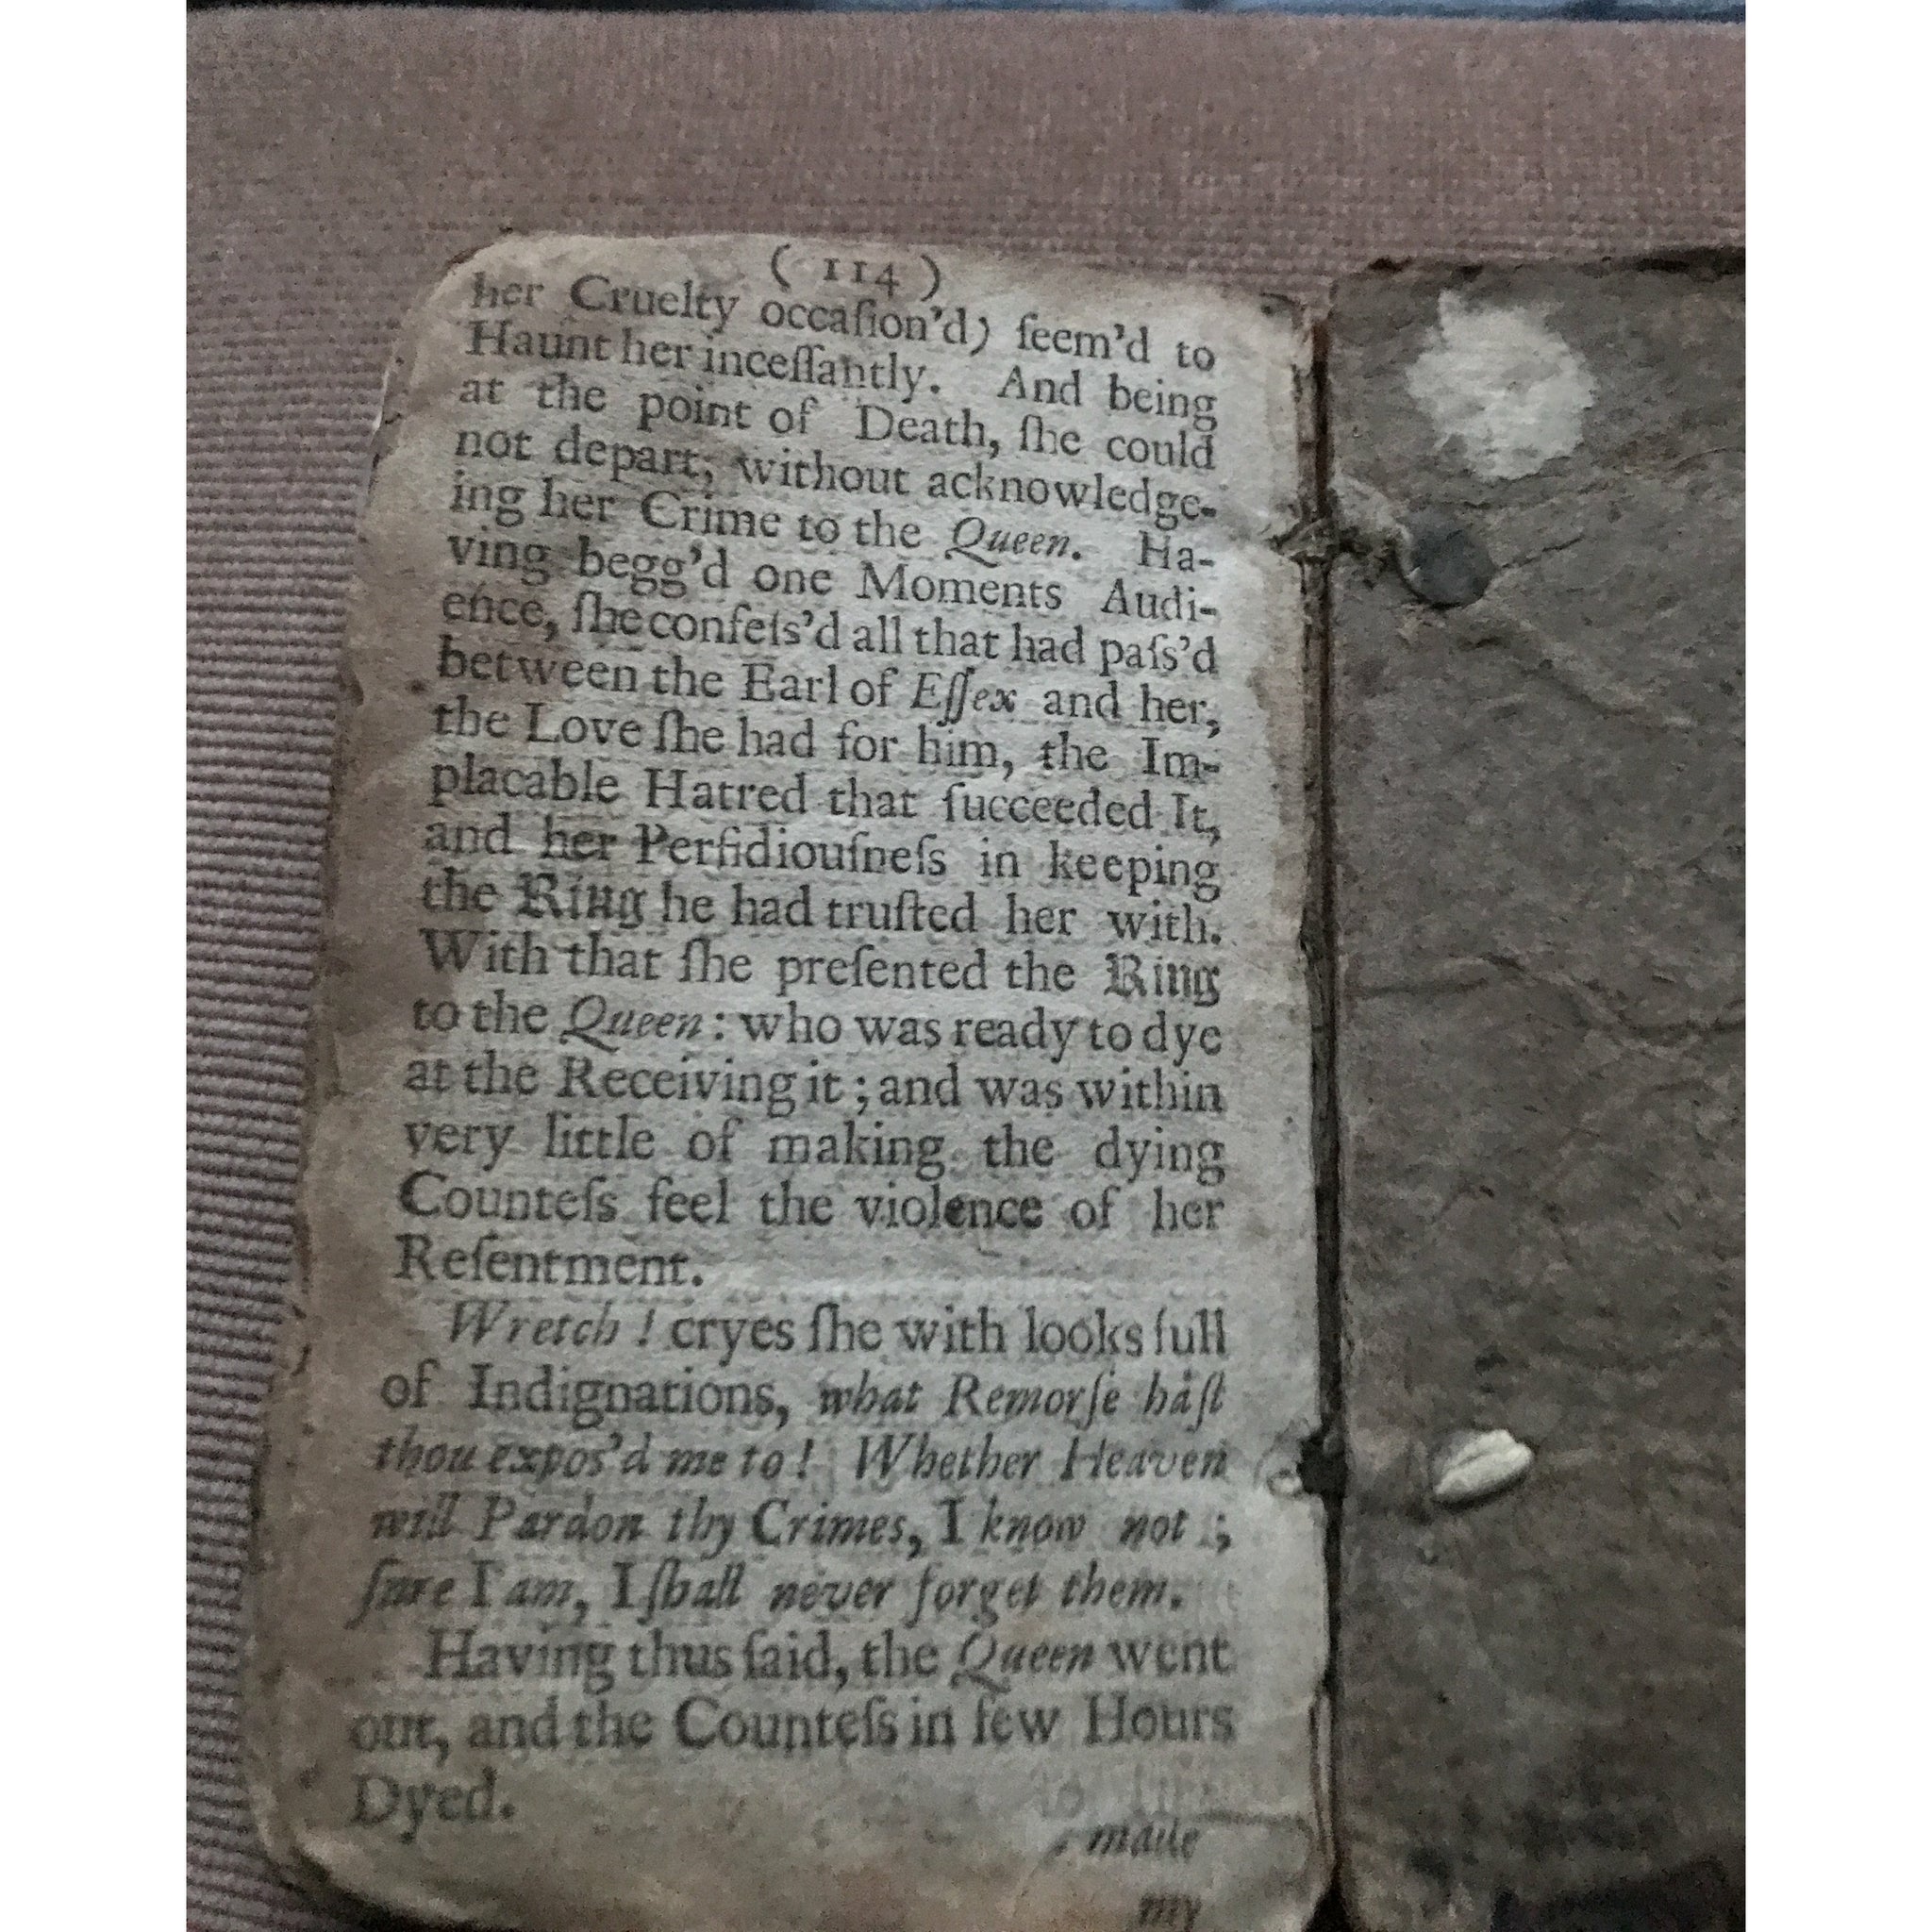 ( 114 )
her Cruelty occaſion'd) ſeem'd to
Haunt her inceſſantly. And being
at the point of Death, ſhe could
not depart, without acknowledge-
ing her Crime to the Queen. Ha-
ving begg'd one Moments Audi-
ence, ſhe confeſs'd all that had paſs'd
between the Earl of Eſſex and her,
the Love ſhe had for him, the Im-
placable Hatred that ſucceeded It,
and her Perfidiouſneſs in keeping
the Ring he had truſted her with.
With that ſhe preſented the Ring
to the Queen: who was ready to dye
at the Receiving it; and was within
very little of making the dying
Counteſs feel the violence of her
Reſentment.
Wretch! cryes ſhe with looks full
of Indignations, what Remorſe haſt
thou expos'd me to! Whether Heaven
will Pardon thy Crimes, I know not;
ſure I am, I ſhall never forget them.
Having thus ſaid, the Queen went
out, and the Counteſs in few Hours
Dyed.
made
my